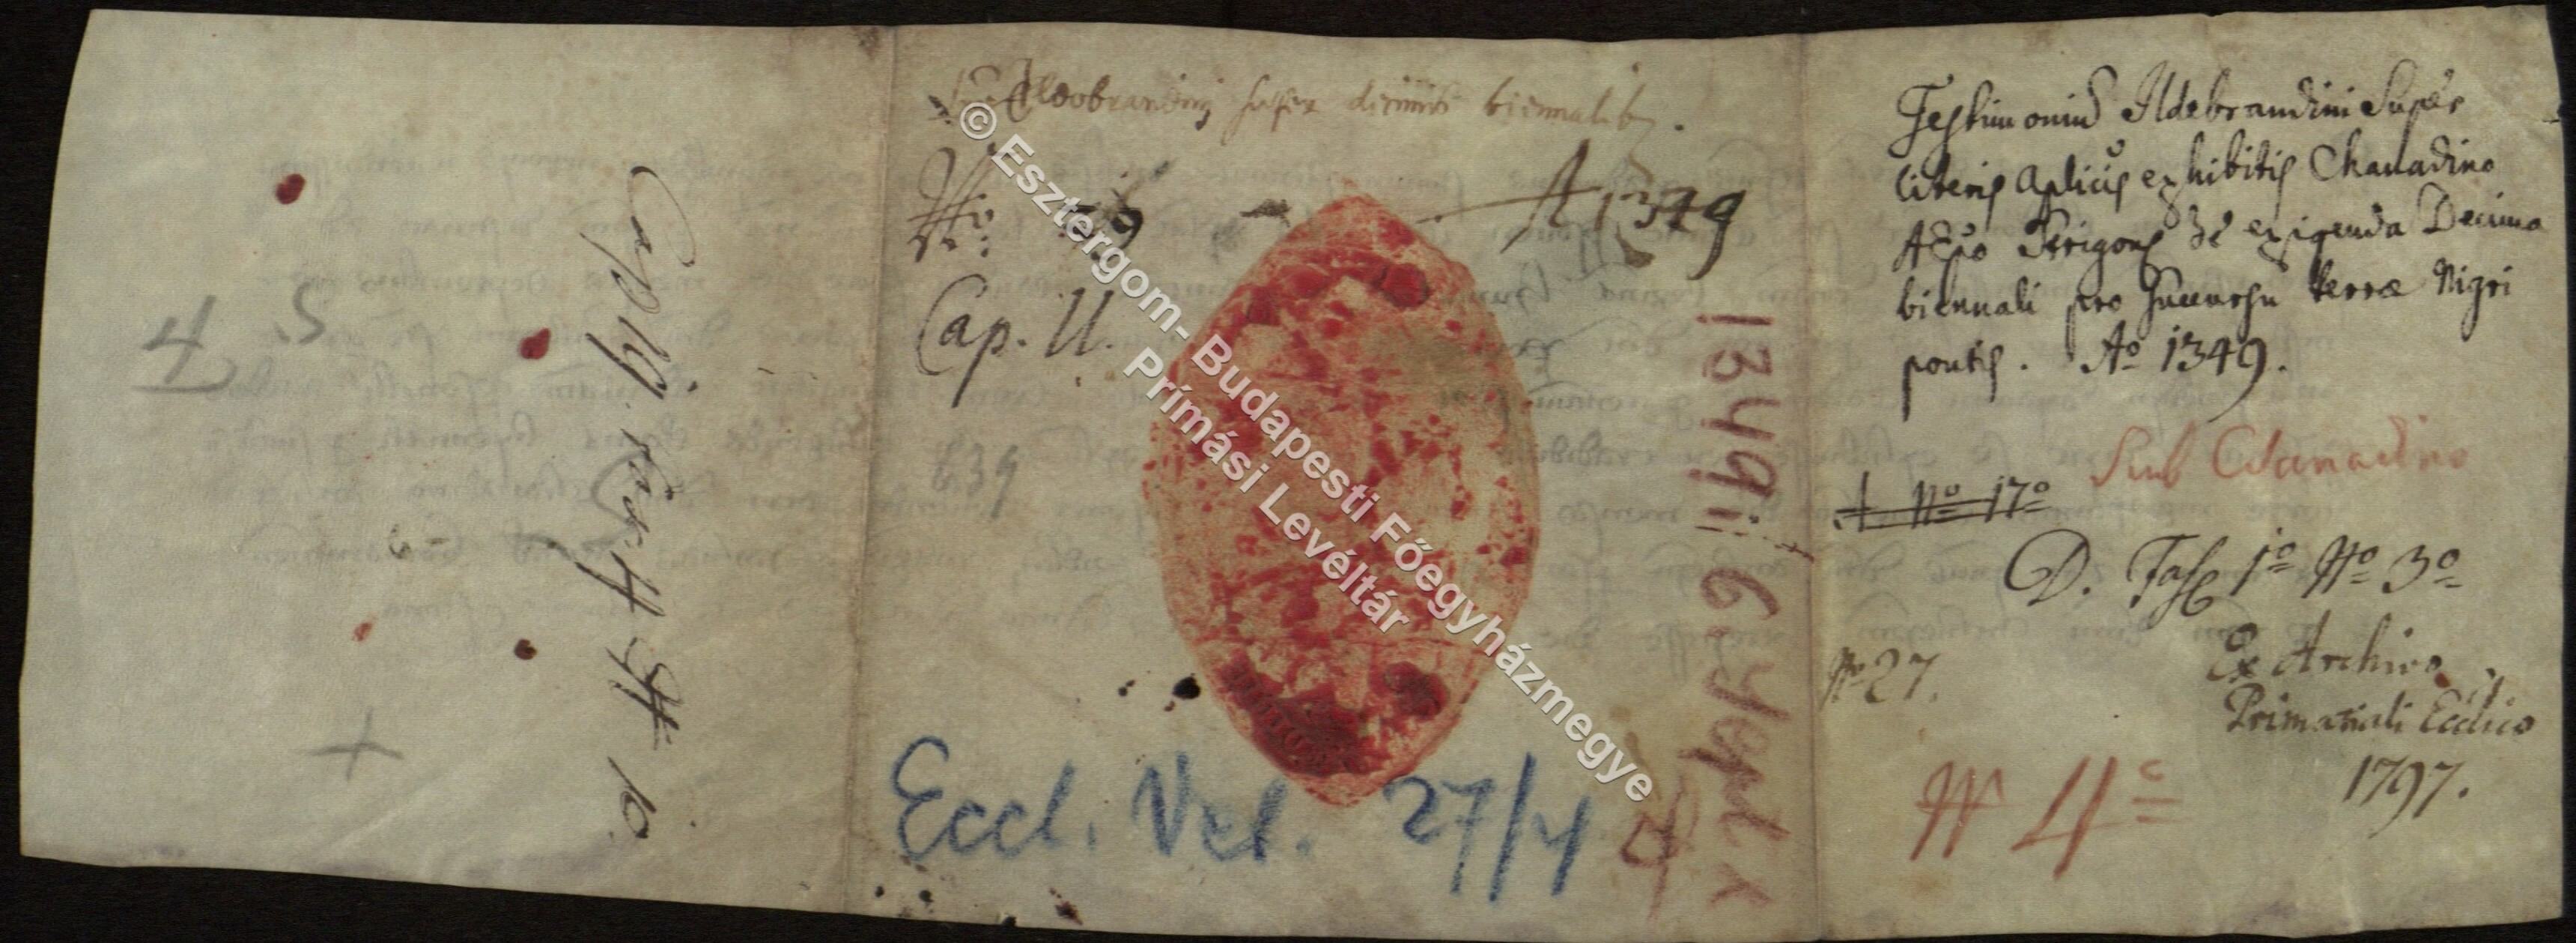 Aldobrandinj super decimis biennalibz.
No. 19
A 1349
Cap. U.
639
Eccl. Vet. 27/4
© Esztergom-Budapesti Főegyházmegye
Prímási Levéltár
4 5
+
Testimoniū Ildebrandini Super
literis Aplicis exhibitis Chanadino
AEpo Strigon de exigenda Decima
biennali pro Succursu terræ Nigri
pontis. Ao 1349.
Sub Chanadino
A No 17o
D. Fasc 1o No 3o
No 27.
Ex Archivo
Primatiali Ecclico
1797.
N 4o